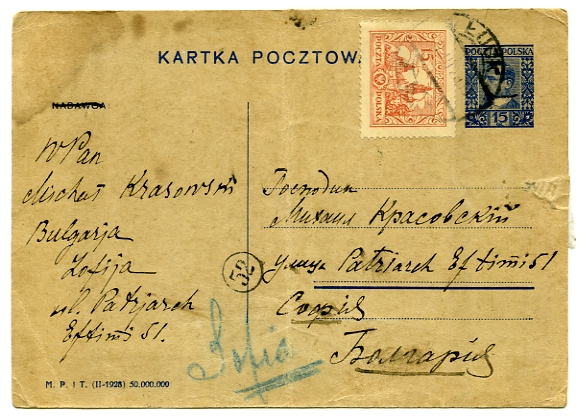 KARTKA POCZTOWA
15
POCZTA POLSKA
POCZTA POLSKA
15
ŁUCK
NADAWCA
WPan
Michał Krasowski
Bulgarja
Zofija
ul. Patrjarch
Eftimi 51.
Господин
Михаил Красовский
улица Patriarch Eftimi 51
София
Болгария
52
Sofia
M. P. i T. (II-1928) 50.000.000